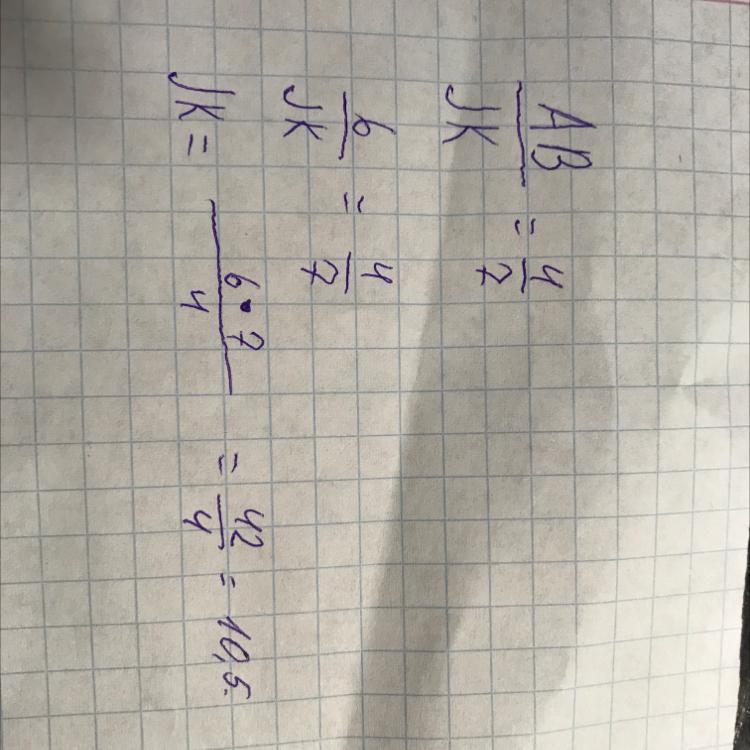 AB/JK = 4/7
6/JK = 4/7
JK = 6·7/4 = 42/4 = 10,5.